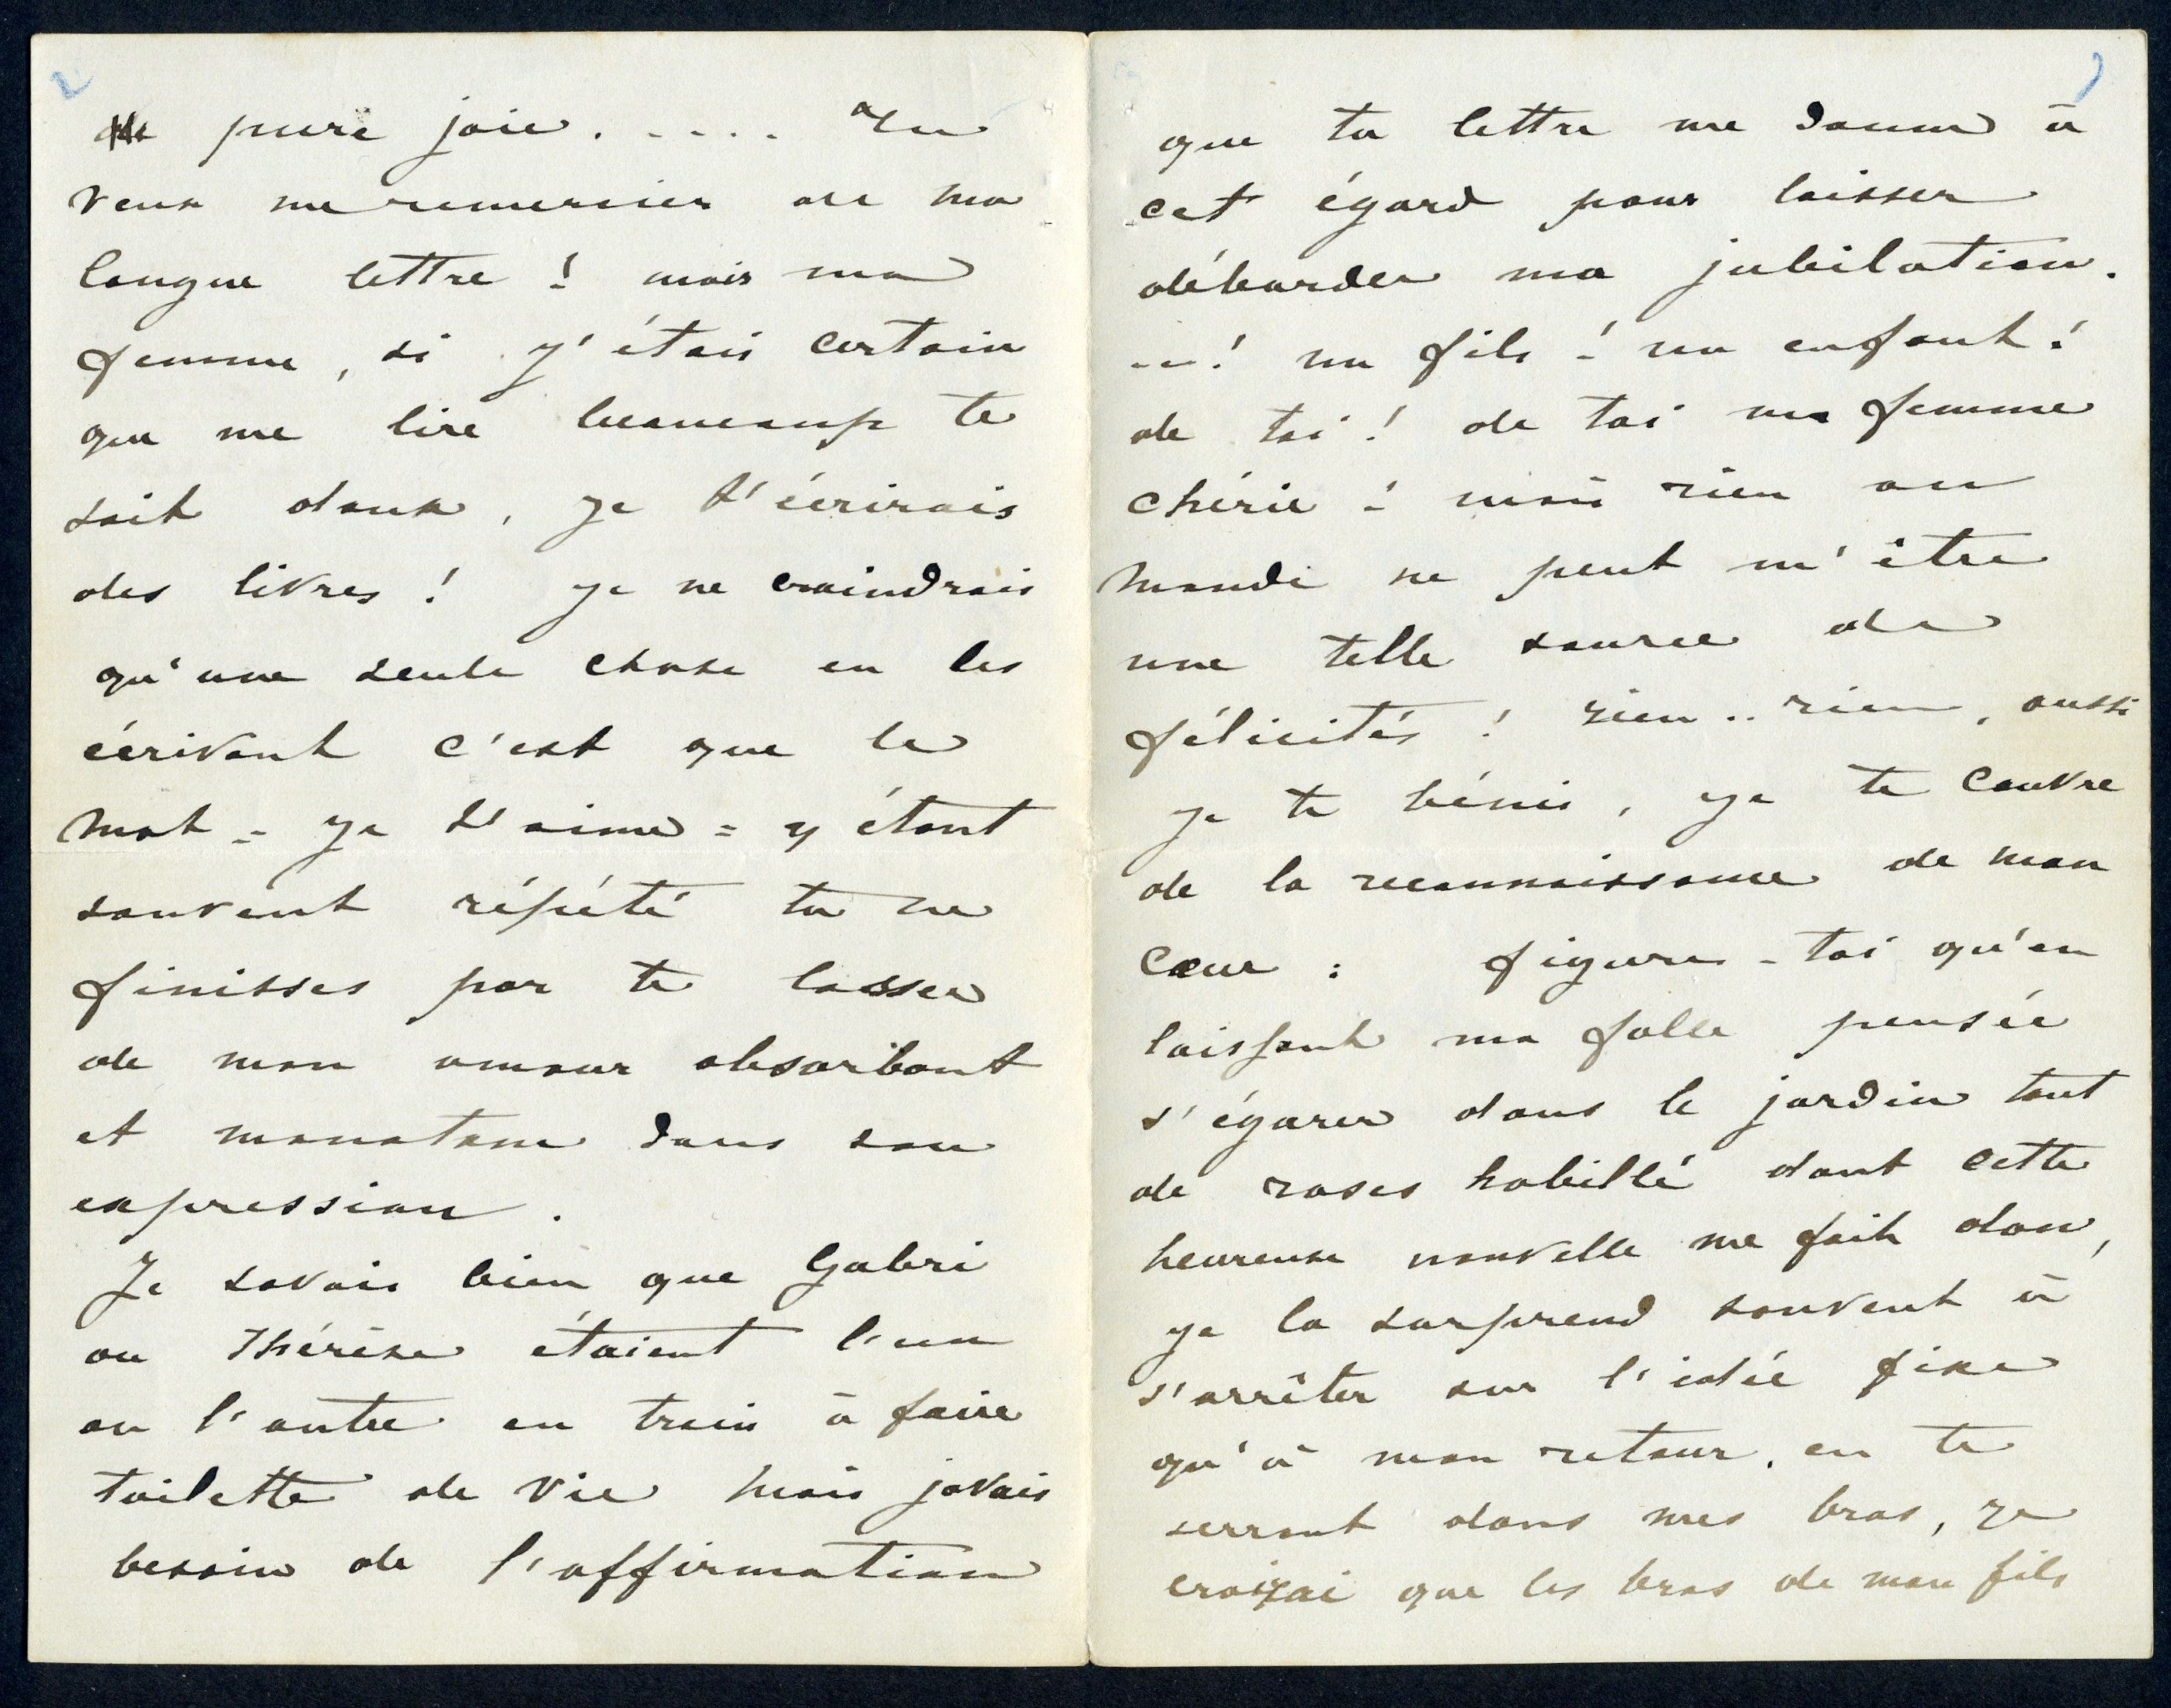 2
de pure joie. .... Tu
veux me remercier de ma
longue lettre ! mais ma
femme, si j'étais certain
que me lire beaucoup te
soit doux, je t'écrirais
des livres ! je ne craindrais
qu'une seule chose en les
écrivant c'est que le
mot = je t'aime = y étant
souvent répété tu ne
finisses par te lasser
de mon amour absorbant
et monotone dans son
expression.
Je savais bien que Gabri
ou Thérèse étaient l'un
ou l'autre en train à faire
toilette de vie mais javais
besoin de l'affirmation
que ta lettre me donne à
cet égard pour laisser
déborder ma jubilation.
..! un fils ! un enfant !
de toi ! de toi ma femme
chérie ! mais rien au
monde ne peut m'être
une telle source de
félicités ! rien .. rien, aussi
je te bénis, je te couvre
de la reconnaissance de mon
cœur : figures-toi qu'en
laissant ma folle pensée
s'égarer dans le jardin tout
de roses habillé dont cette
heureuse nouvelle me fait don,
je la surprend souvent à
s'arrêter sur l'idée fixe
qu'à mon retour, en te
serrant dans mes bras, je
croirai que les bras de mon fils